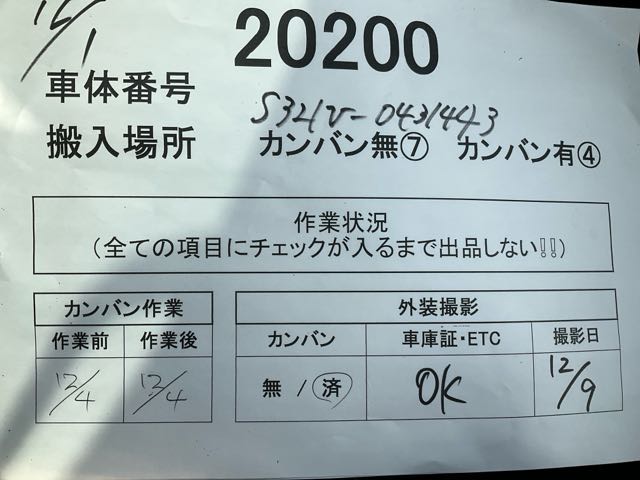 12/1
20200
車体番号 S321V-0431443
搬入場所 カンバン無⑦ カンバン有④
作業状況
(全ての項目にチェックが入るまで出品しない!!)
カンバン作業 外装撮影
作業前 作業後 カンバン 車庫証・ETC 撮影日
12/4 12/4 無 / 済 OK 12/9